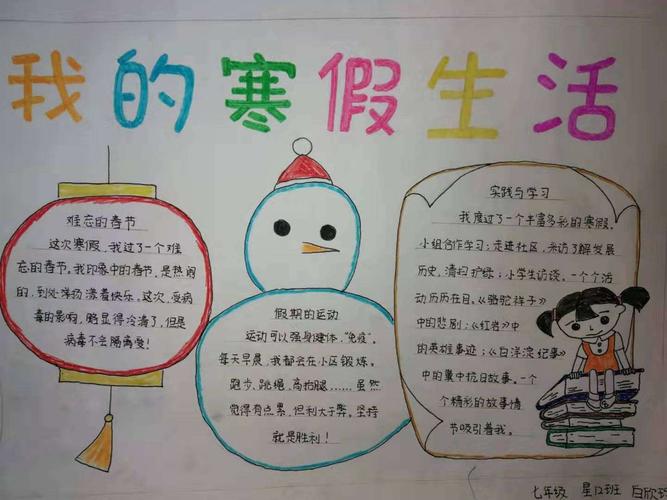 我的寒假生活
难忘的春节
这次寒假,我过了一个难
忘的春节。我印象中的春节,是热闹
的,到处洋扬溢着快乐。这次,受病
毒的影响,略显得冷清了,但是
病毒不会隔离爱!
假期的运动
运动可以强身健体,“免疫”。
每天早晨,我都会在小区锻炼。
跑步、跳绳、高抬腿……虽然
觉得有点累,但利大于弊。坚持
就是胜利!
实践与学习
我度过了一个丰富多彩的寒假。
小组合作学习;走进社区,采访了解发展
历史,清扫护绿;小学生访谈。一个个活
动历历在目。《骆驼祥子》
中的悲剧;《红岩》中
的英雄事迹;《白洋淀纪事》
中的冀中抗日故事。一个
个精彩的故事情
节吸引着我。
七年级 星12班 白欣